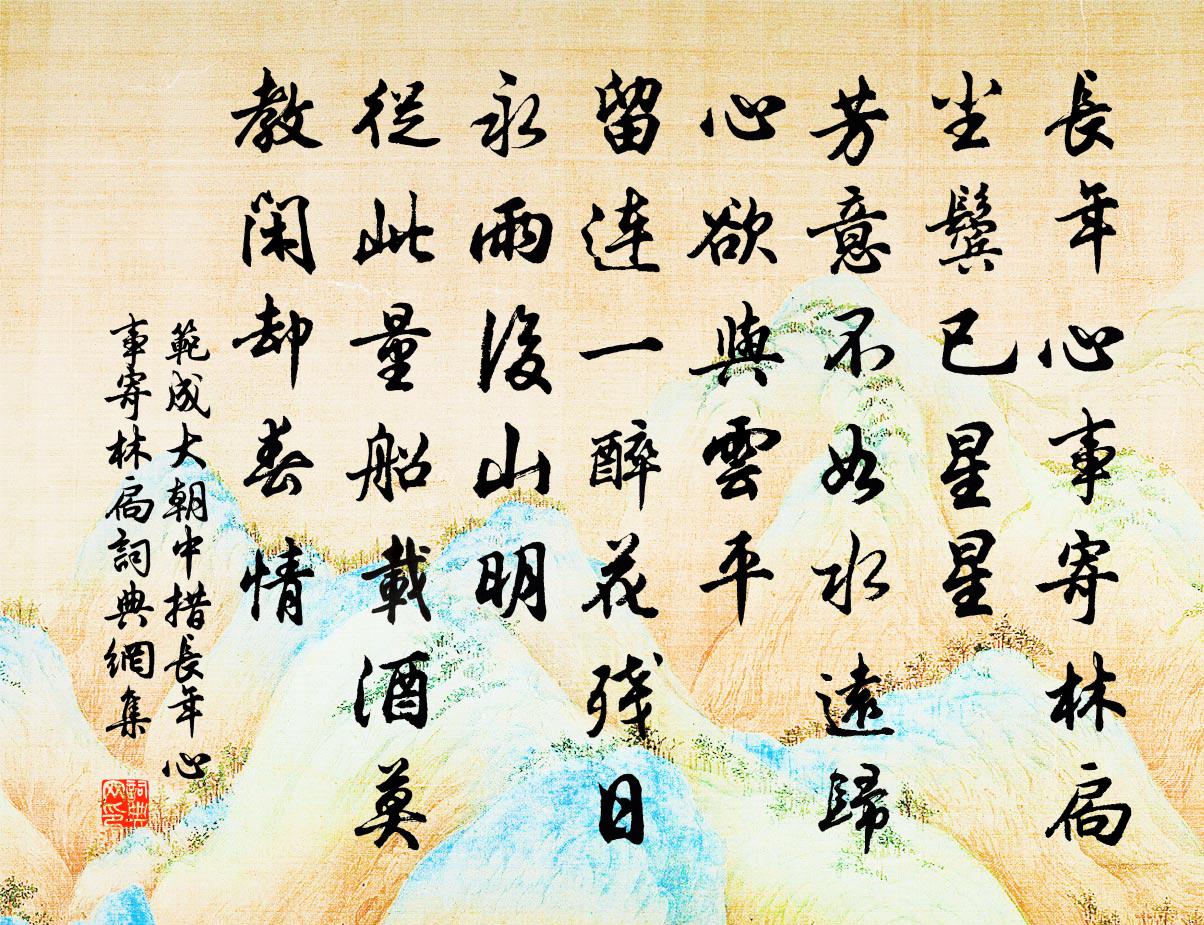 長年心事寄林扃
尘鬓已星星
芳意不如水遠歸
心欲與雲平
留連一醉花殘日
永雨後山明
從此量船載酒莫
教閑却春情
範成大朝中措長年心
事寄林扃詞典網集